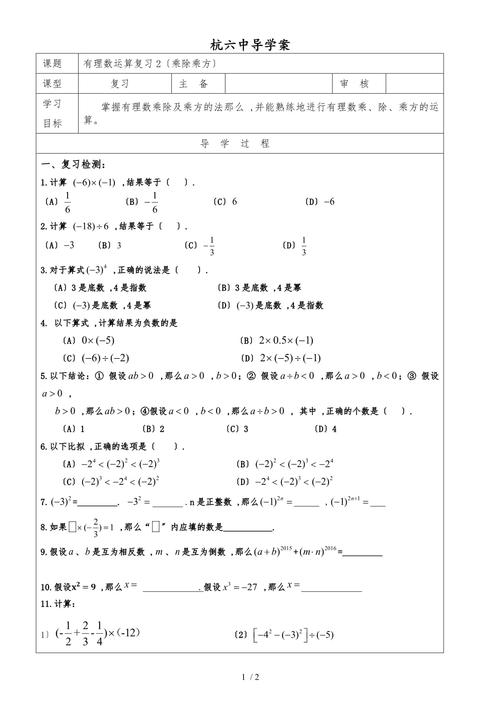 杭六中导学案
课题 有理数运算复习2〔乘除乘方〕
课型 复习 主 备 审 核
学习目标 掌握有理数乘除及乘方的法那么 ,并能熟练地进行有理数乘、除、乘方的运
算。
导 学 过 程
一、复习检测：
1.计算 (−6)×(−1) ,结果等于〔 〕.
〔A〕1/6 〔B〕−1/6 〔C〕6 〔D〕−6
2.计算 (−18)÷6 ,结果等于〔 〕.
〔A〕−3 〔B〕3 〔C〕−1/3 〔D〕1/3
3.对于算式(−3)⁴ ,正确的说法是〔 〕.
〔A〕3是底数 ,4是指数 〔B〕3是底数 ,4是幂
〔C〕(−3)是底数 ,4是幂 〔D〕(−3)是底数 ,4是指数
4. 以下算式 ,计算结果为负数的是
〔A〕0×(−5) 〔B〕2×0.5×(−1)
〔C〕(−6)÷(−2) 〔D〕2×(−5)÷(−1)
5.以下结论：① 假设ab>0 ,那么a>0 ,b>0；② 假设a÷b<0 ,那么a>0 ,b<0；③ 假设
a>0 ,
b>0 ,那么ab>0；④假设a<0 ,b<0 ,那么a÷b>0 , 其中 ,正确的个数是〔 〕.
〔A〕1 〔B〕2 〔C〕3 〔D〕4
6.以下比拟 ,正确的选项是〔 〕.
〔A〕−2⁴<(−2)²<(−2)³ 〔B〕(−2)²<(−2)³<−2⁴
〔C〕(−2)³<−2⁴<(−2)² 〔D〕−2⁴<(−2)³<(−2)²
7.(−3)²=________. −3²=______.n是正整数 ,那么(−1)²ⁿ=_____ .(−1)²ⁿ⁺¹=___
8.如果□×(−2/3)=1 ,那么“□〞内应填的数是__________.
9.假设a、b是互为相反数 ,m、n是互为倒数 ,那么(a+b)²⁰¹⁵+(m·n)²⁰¹⁶=________
10.假设x²=9 ,那么x= ___________.假设x³=−27 ,那么x=____________
11.计算：
1〕(-1/2+2/3-1/4)×（-12） 〔2〕[−4²−(−3)²]÷(−5)
1 / 2